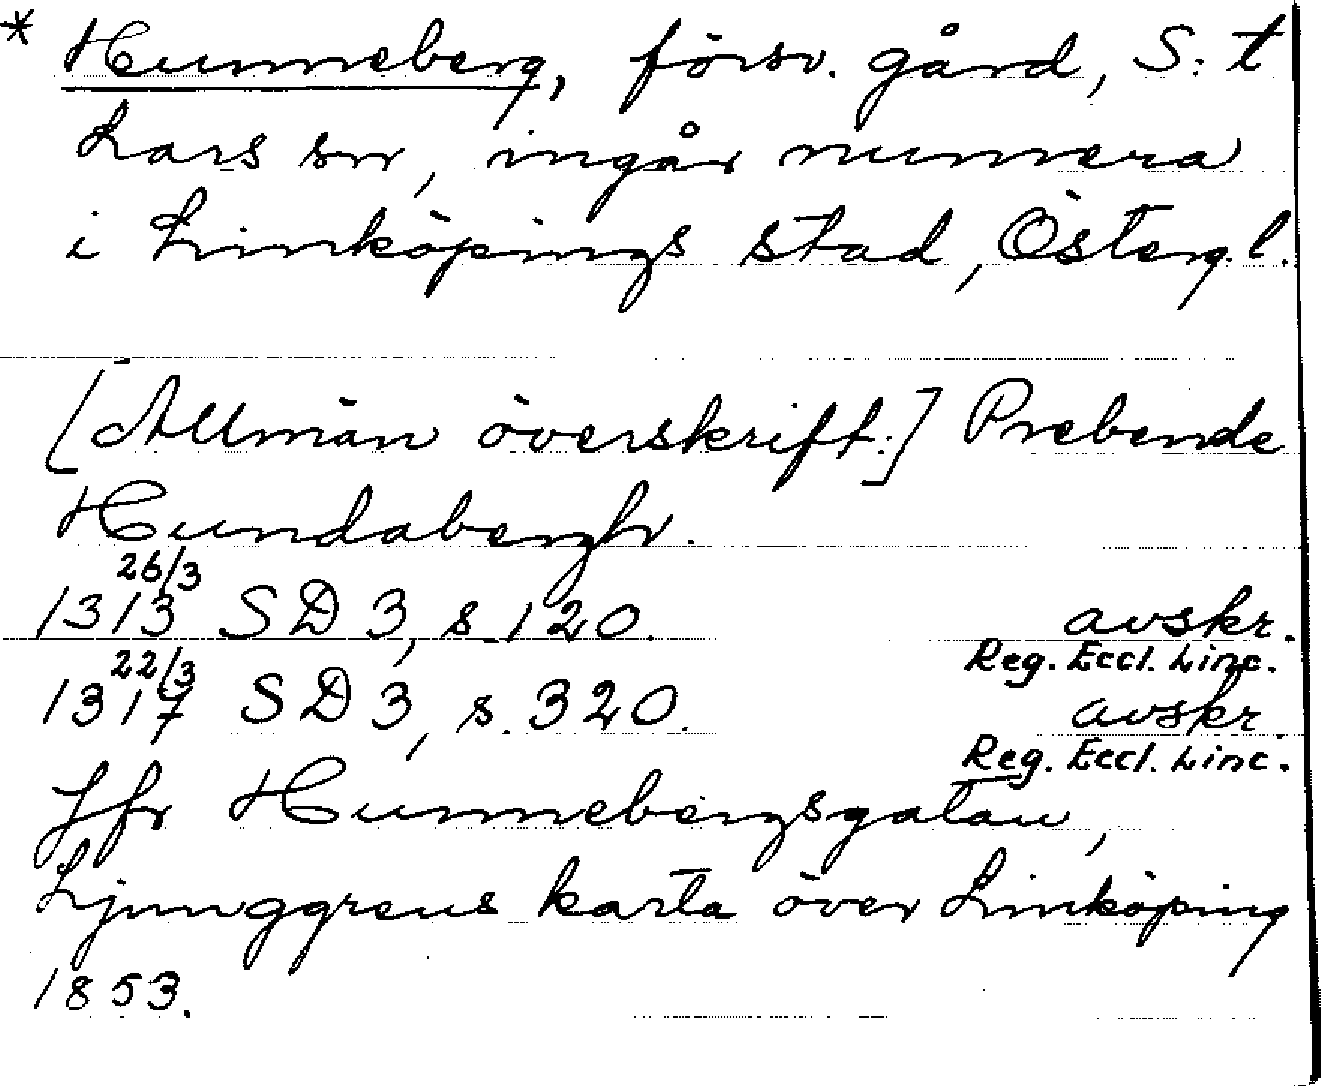 * Hunneberg, försv. gård, S:t
Lars sn, ingår numera
i Linköpings stad, Östergl.
[Allmän överskrift:] Prebende
Hundabergh.
1313 26/3 SD 3, s. 120. avskr.
Reg. Eccl. Linc.
1317 22/3 SD 3, s. 320. avskr.
Reg. Eccl. Linc.
Jfr Hunnebergsgatan,
Ljunggrens karta över Linköping
1853.